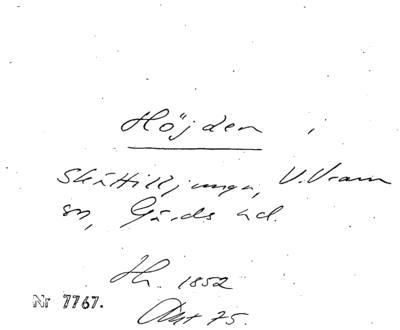 Höjden,
Skättilljunga, V. Vram
sn, Gärds hd.
Hr. 1852
Akt 75.
Nr 7767.